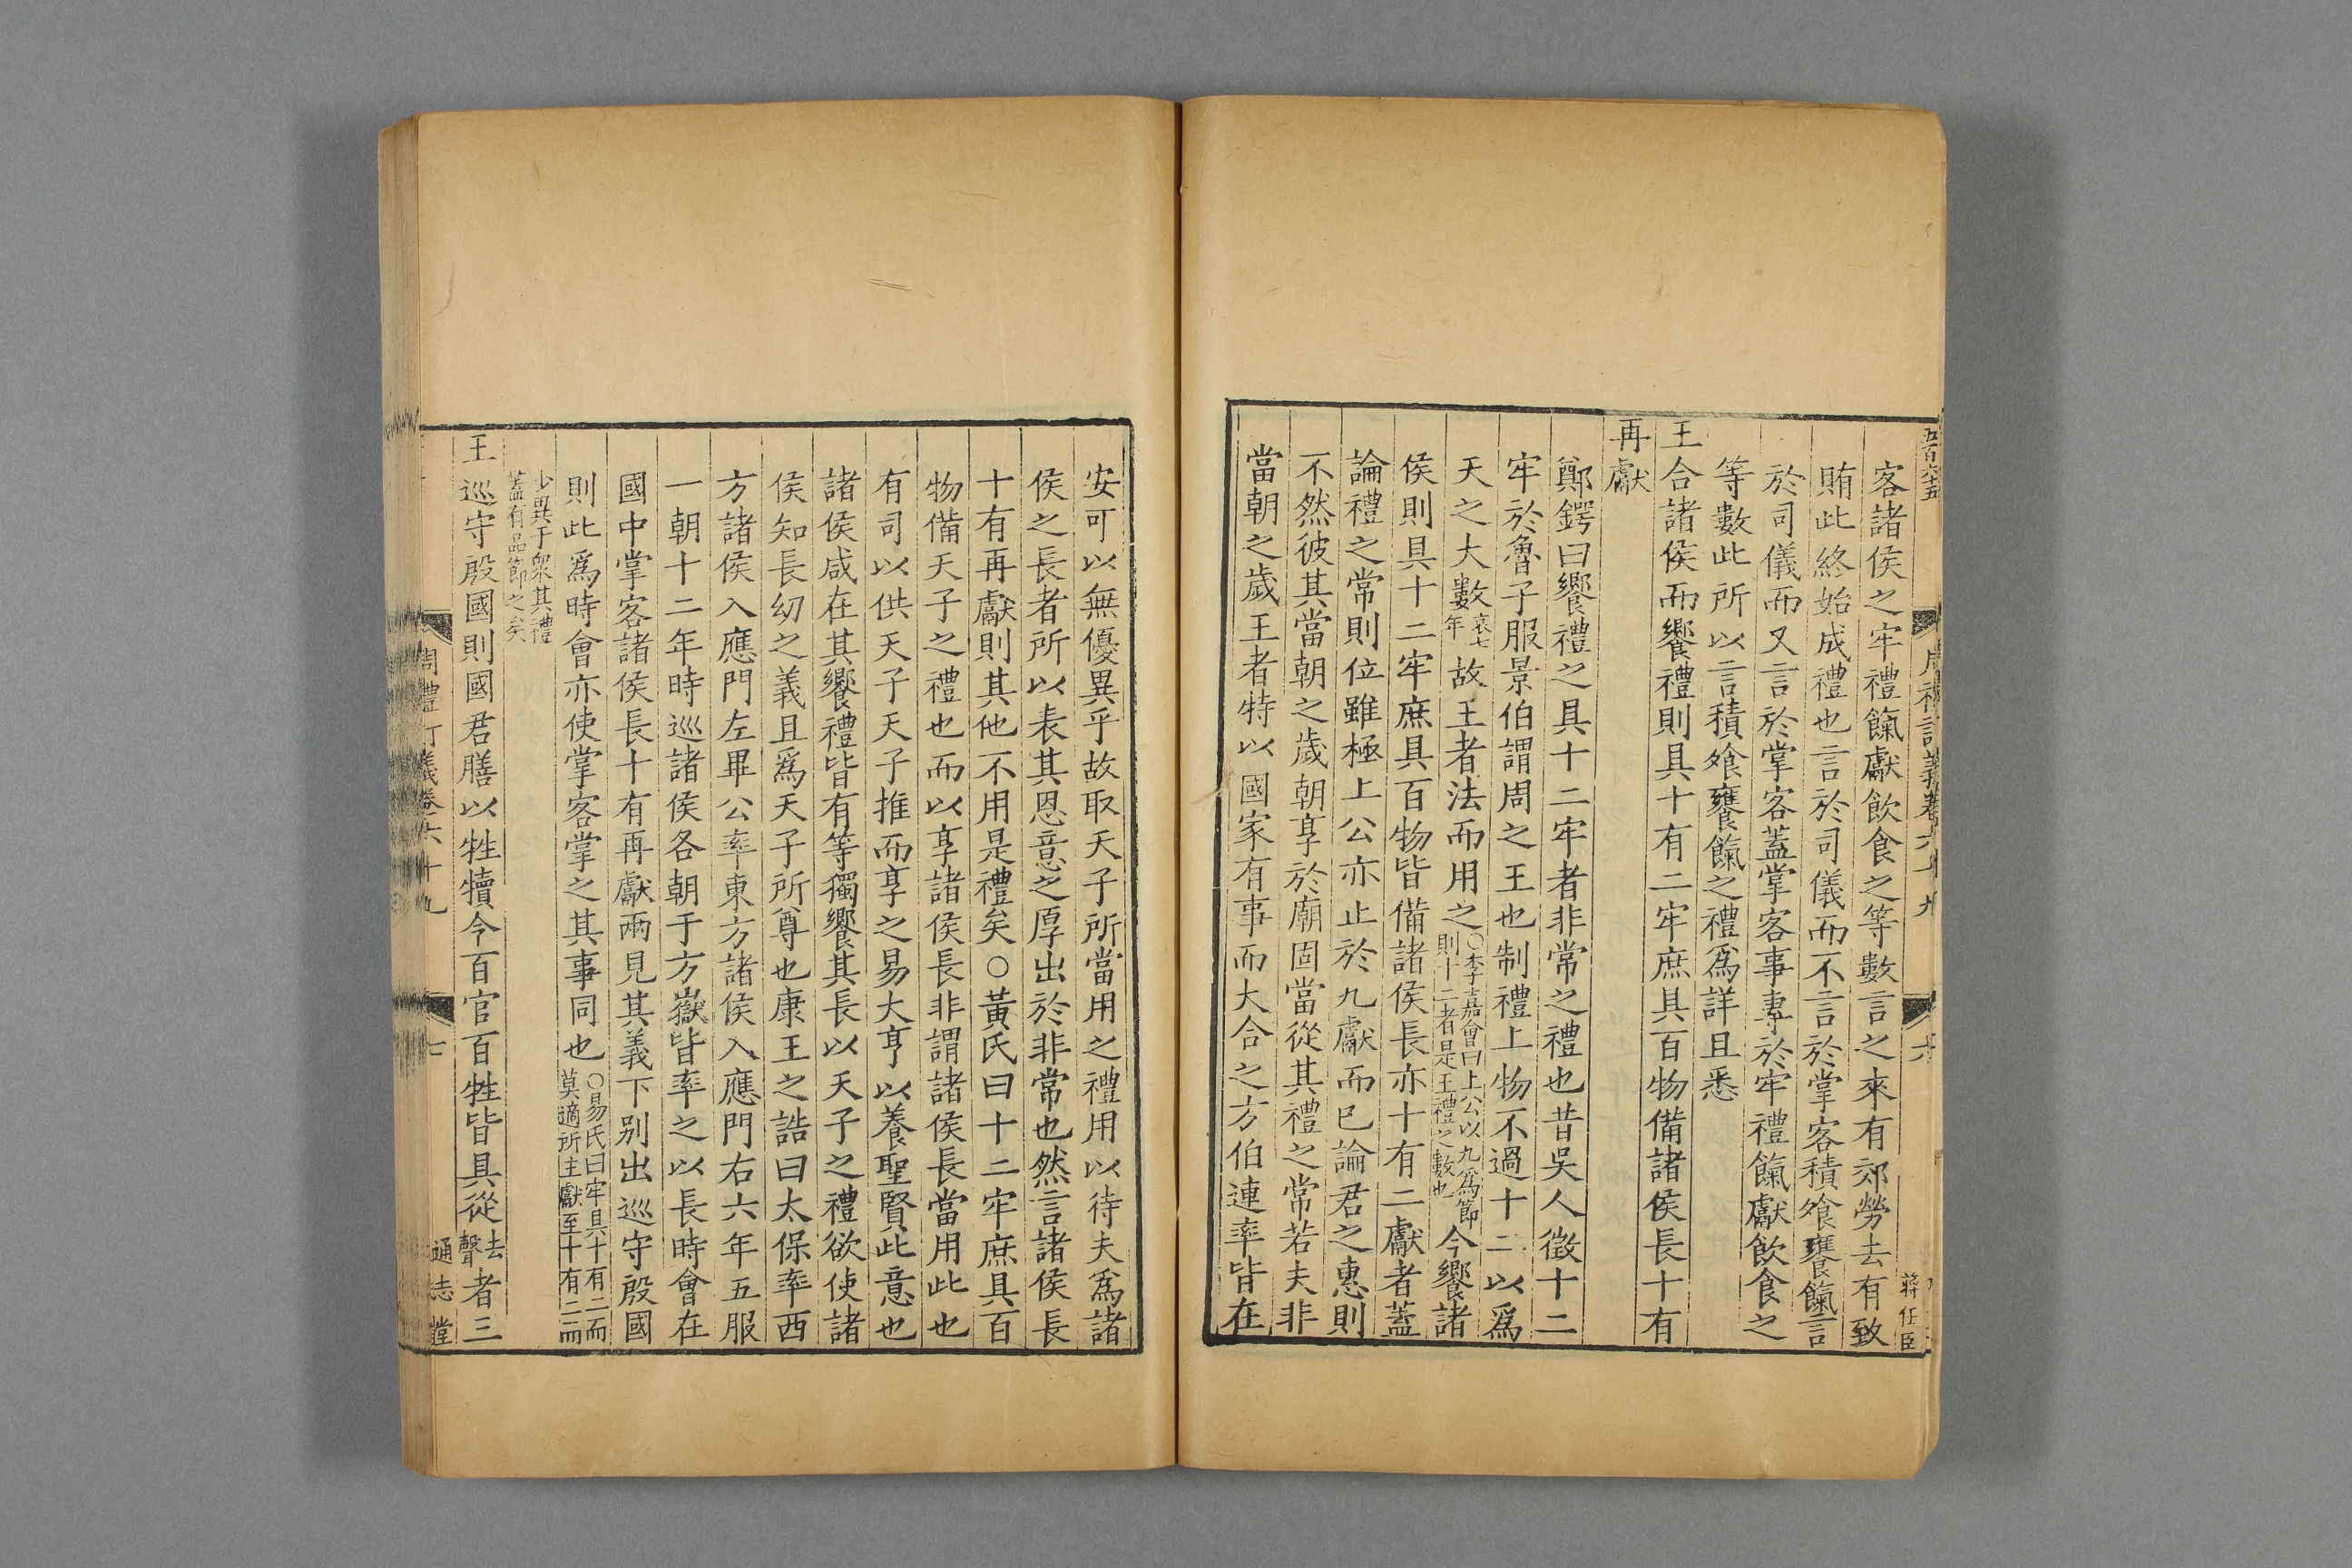 五百六十五
周禮訂義卷六十九
六
蔣任臣
客諸侯之牢禮餼獻飲食之等數言之來有郊勞去有致
賄此終始成禮也言於司儀而不言於掌客積飧饔餼言
於司儀而又言於掌客蓋掌客事專於牢禮餼獻飲食之
等數此所以言積飧饔餼之禮爲詳且悉
王合諸侯而饗禮則具十有二牢庶具百物備諸侯長十有
再獻
鄭鍔曰饗禮之具十二牢者非常之禮也昔吳人徵十二
牢於魯子服景伯謂周之王也制禮上物不過十二以爲
天之大數哀七年故王者法而用之○李嘉會曰上公以九爲節則十二者是王禮之數也今饗諸
侯則具十二牢庶具百物皆備諸侯長亦十有二獻者蓋
論禮之常則位雖極上公亦止於九獻而已論君之惠則
不然彼其當朝之歲朝享於廟固當從其禮之常若夫非
當朝之歲王者特以國家有事而大合之方伯連率皆在
安可以無優異乎故取天子所當用之禮用以待夫爲諸
侯之長者所以表其恩意之厚出於非常也然言諸侯長
十有再獻則其他不用是禮矣○黃氏曰十二牢庶具百
物備天子之禮也而以享諸侯長非謂諸侯長當用此也
有司以供天子天子推而享之易大亨以養聖賢此意也
諸侯咸在其饗禮皆有等獨饗其長以天子之禮欲使諸
侯知長幼之義且爲天子所尊也康王之誥曰太保率西
方諸侯入應門左畢公率東方諸侯入應門右六年五服
一朝十二年時巡諸侯各朝于方嶽皆率之以長時會在
國中掌客諸侯長十有再獻兩見其義下別出巡守殷國
則此爲時會亦使掌客掌之其事同也○易氏曰牢具十有二而莫適所主獻至十有二而
少異于衆其禮蓋有品節之矣
王巡守殷國則國君膳以牲犢令百官百牲皆具從去聲者三
周禮訂義卷六十九
七
通志堂